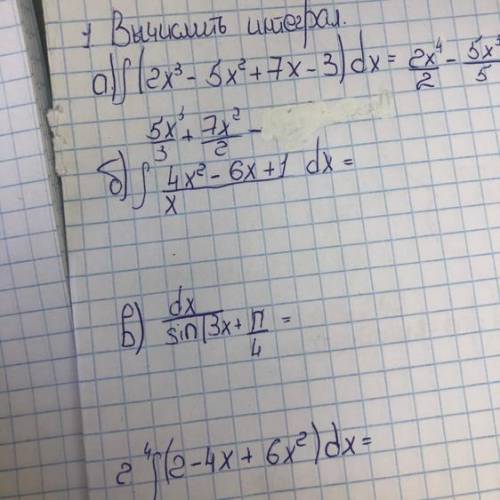 1 Вычислить интеграл.
а) ∫(2x³ - 5x² + 7x - 3)dx = 2x⁴/2 - 5x³/5
5x³/3 + 7x²/2 -
б) ∫ (4x² - 6x + 1)/x dx =
в) dx/sin(3x + π/4 =
2 ⁴∫(2 - 4x + 6x²)dx =